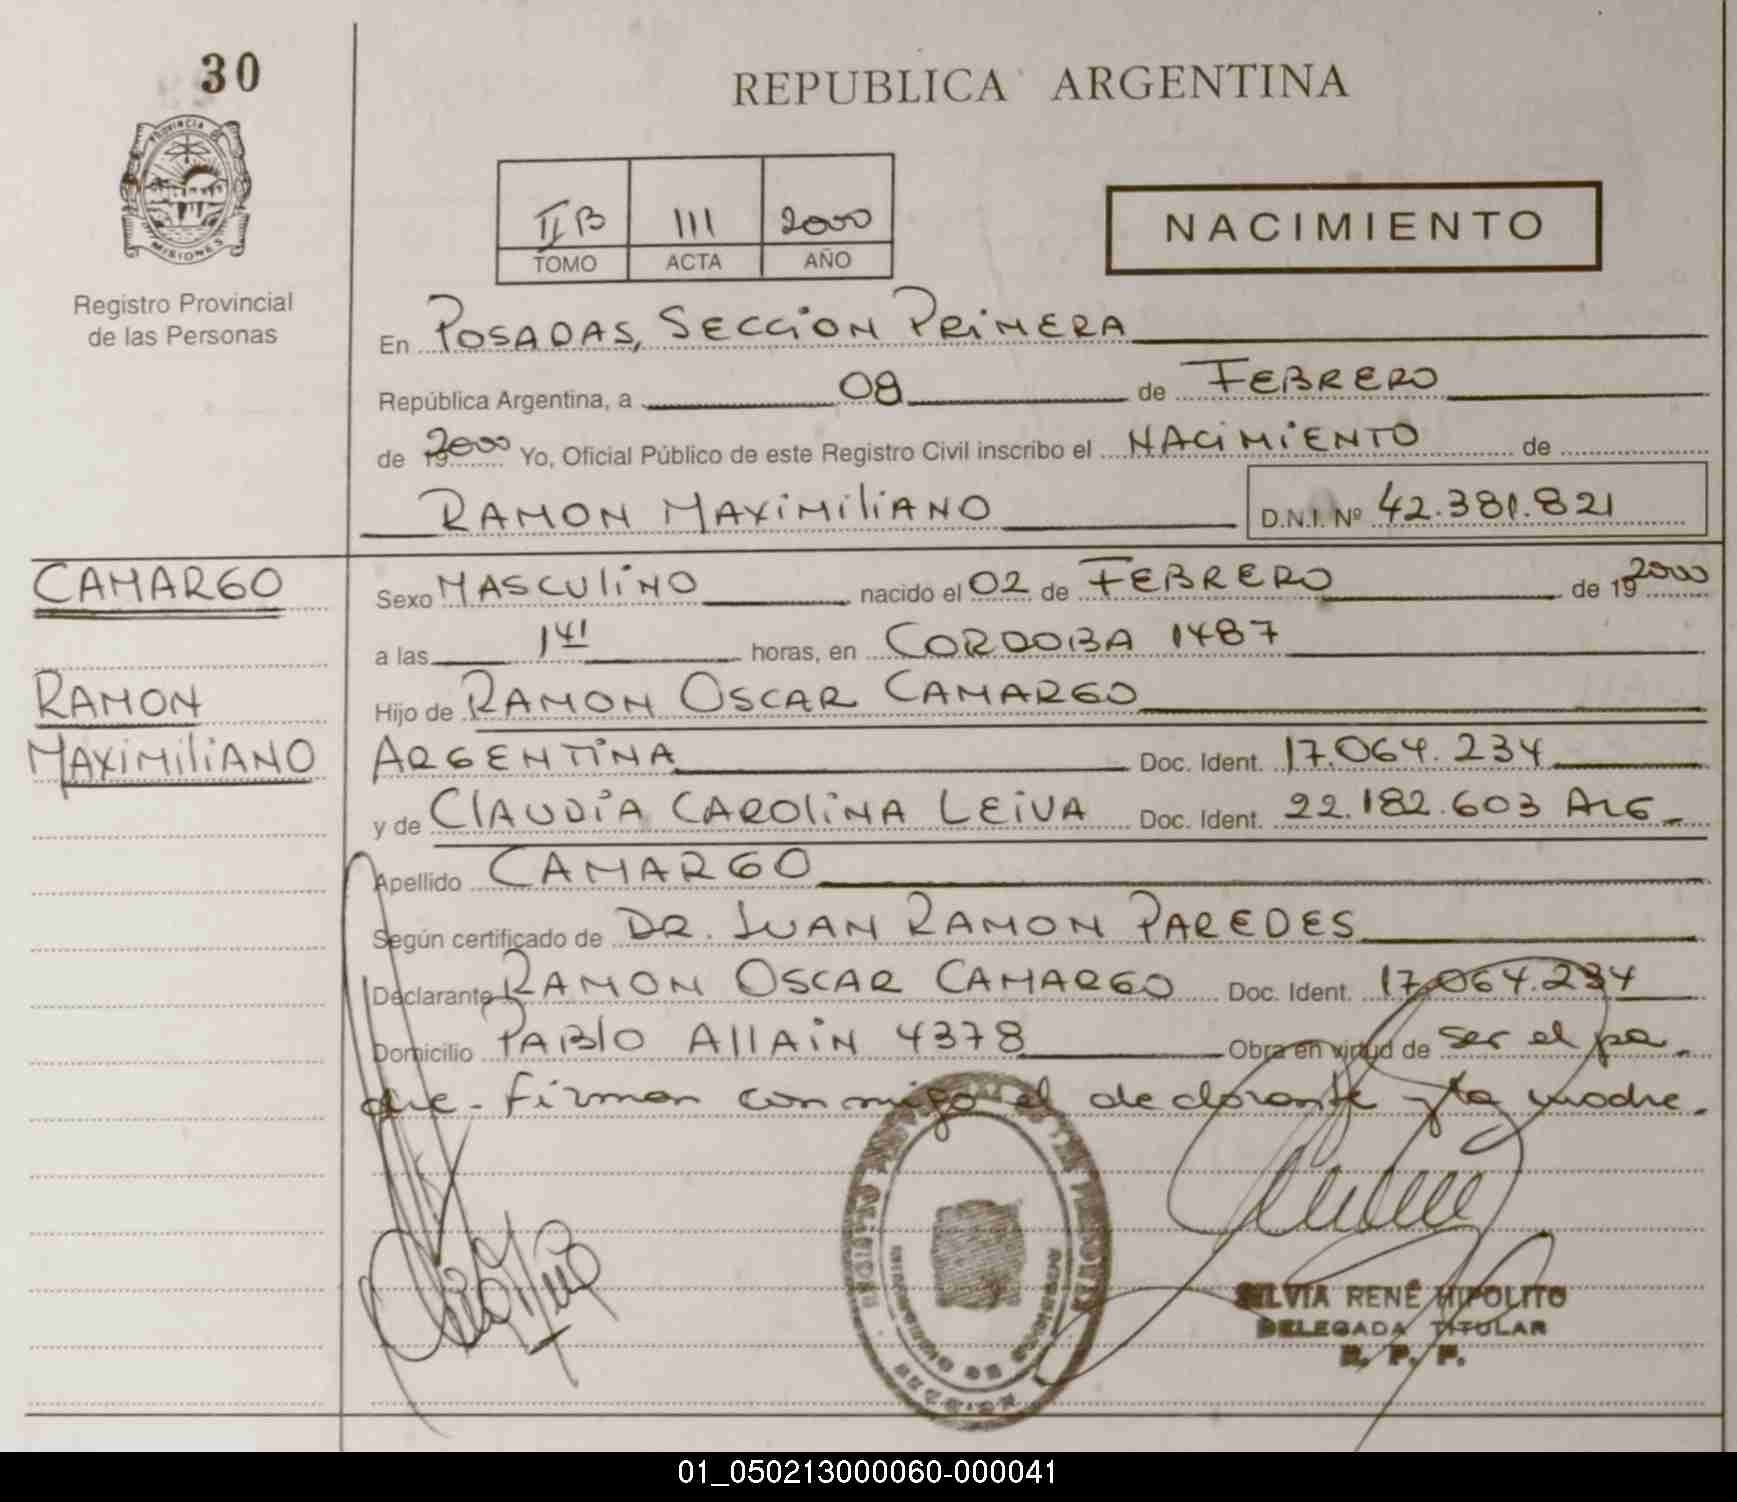 30
REPUBLICA ARGENTINA
PROVINCIA DE
MISIONES
Registro Provincial
de las Personas
II B 111 2000
TOMO ACTA AÑO
NACIMIENTO
En POSADAS, SECCION PRIMERA
República Argentina, a 08 de FEBRERO
de 19 2000 Yo, Oficial Público de este Registro Civil inscribo el NACIMIENTO de
RAMON MAXIMILIANO D.N.I. Nº 42.381.821
CAMARGO
RAMON
MAXIMILIANO
Sexo MASCULINO nacido el 02 de FEBRERO de 19 2000
a las horas, en CORDOBA 1487
Hijo de RAMON OSCAR CAMARGO
ARGENTINA Doc. Ident. 17.064.234
y de CLAUDIA CAROLINA LEIVA Doc. Ident. 22.182.603 ARG
Apellido CAMARGO
Según certificado de DR. JUAN RAMON PAREDES
Declarante RAMON OSCAR CAMARGO Doc. Ident. 17.064.234
Domicilio PABLO ALLAIN 4378 Obra en virtud de ser el pa-
dre - Firman conmigo el declarante y la madre.
SILVIA RENÉ HIPOLITO
DELEGADA TITULAR
R. P. P.
01_050213000060-000041